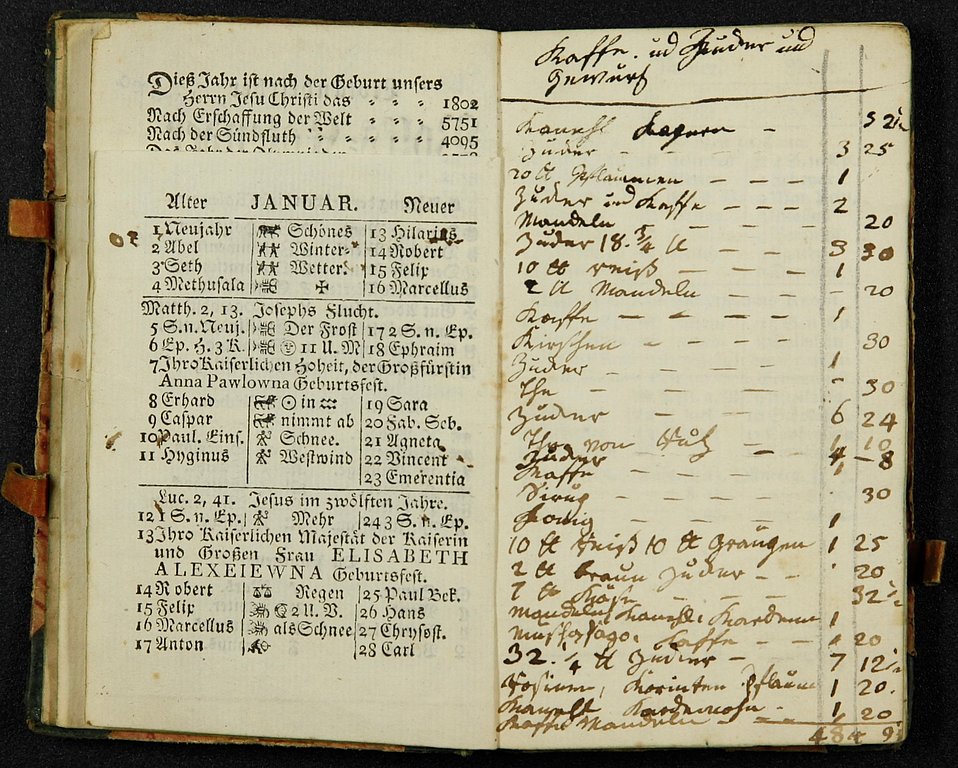 Dieß Jahr ist nach der Geburt unsers
Herrn Jesu Christi das - - - 1802
Nach Erschaffung der Welt - - 5751
Nach der Sündfluth - - - - 4095
Alter JANUAR. Neuer
1 Neujahr Schönes 13 Hilarius
2 Abel Winter- 14 Robert
3 Seth Wetter. 15 Felix
4 Methusala 16 Marcellus
Matth. 2, 13. Josephs Flucht.
5 S. n. Neuj. Der Frost 17 2 S. n. Ep.
6 Ep. H. 3 K. 11 U. M 18 Ephraim
7 Ihro Kaiserlichen Hoheit, der Großfürstin
Anna Pawlowna Geburtsfest.
8 Erhard in 19 Sara
9 Caspar nimmt ab 20 Fab. Seb.
10 Paul. Eins. Schnee. 21 Agneta
11 Hyginus Westwind 22 Vincent
23 Emerentia
Luc. 2, 41. Jesus im zwölften Jahre.
12 1 S. n. Ep. Mehr 24 3 S. n. Ep.
13 Ihro Kaiserlichen Majestät der Kaiserin
und Großen Frau ELISABETH
ALEXEIEWNA Geburtsfest.
14 Robert Regen 25 Paul Bek.
15 Felix 2 U. V. 26 Hans
16 Marcellus als Schnee 27 Chrysost.
17 Anton 28 Carl
Kaffe. und Zucker und
Gewürz
Kaneehl - 52½
Zucker - - - 3 25
20 ℔ Pflaumen - - - 1
Zucker und Kaffe - - 2
Mandeln - - - 20
Zucker 18. ¾ ℔ - - 3 30
10 ℔ reiß - - - 1
2 ℔ Mandeln - - - 20
Kaffe - - - - 1
Kirschen - - - - 30
Zucker - - - - 1
The - - - - - 30
Zucker - - - 6 24
The von - 4 10
Zucker - - 4 - 8
Kaffe - - - 1
Sirup - - - - 30
Honig - - - - 1
10 ℔ reiß 10 ℔ Graupen 1 25
2 ℔ braun Zucker - - 20
7 ℔ - - - 32½
Mandeln Kaneehl. Kardem 1
Kaffe - - 1 20
32. ¼ ℔ Zucker - 7 12½
Rosinen, Korinten Pflaum 1 20.
Kaneehl Kardemohn - 1 20
Kaffe Mandeln -
484 9